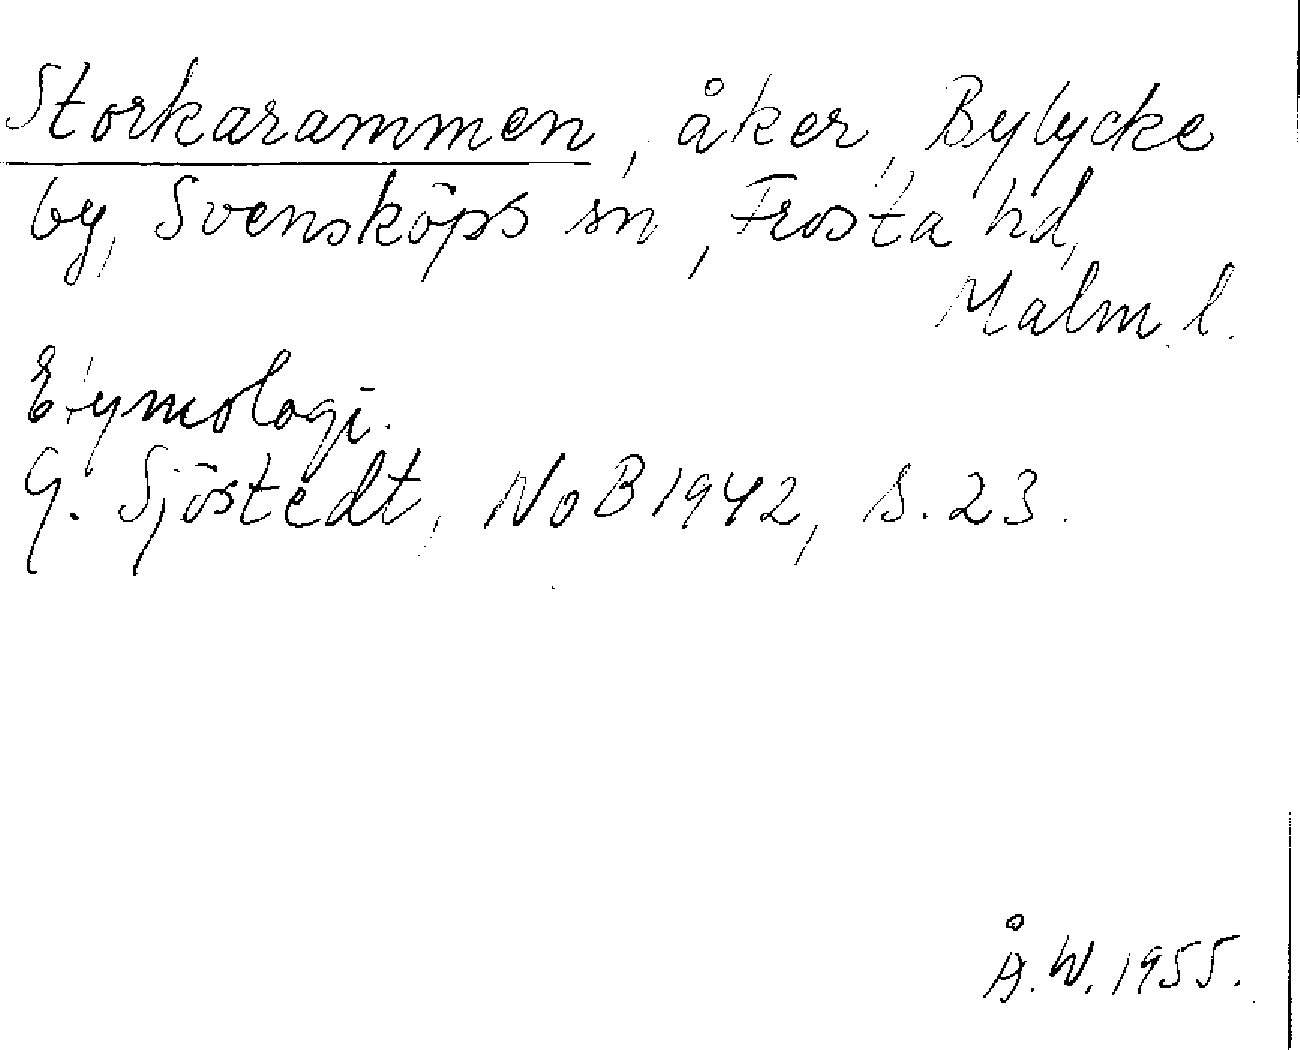 Storkarammen, åker, Bylycke
by, Svensköps sn, Frosta hd,
Malm. l.
Etymologi.
G. Sjöstedt, NoB 1942, s. 23.
Å. W. 1955.